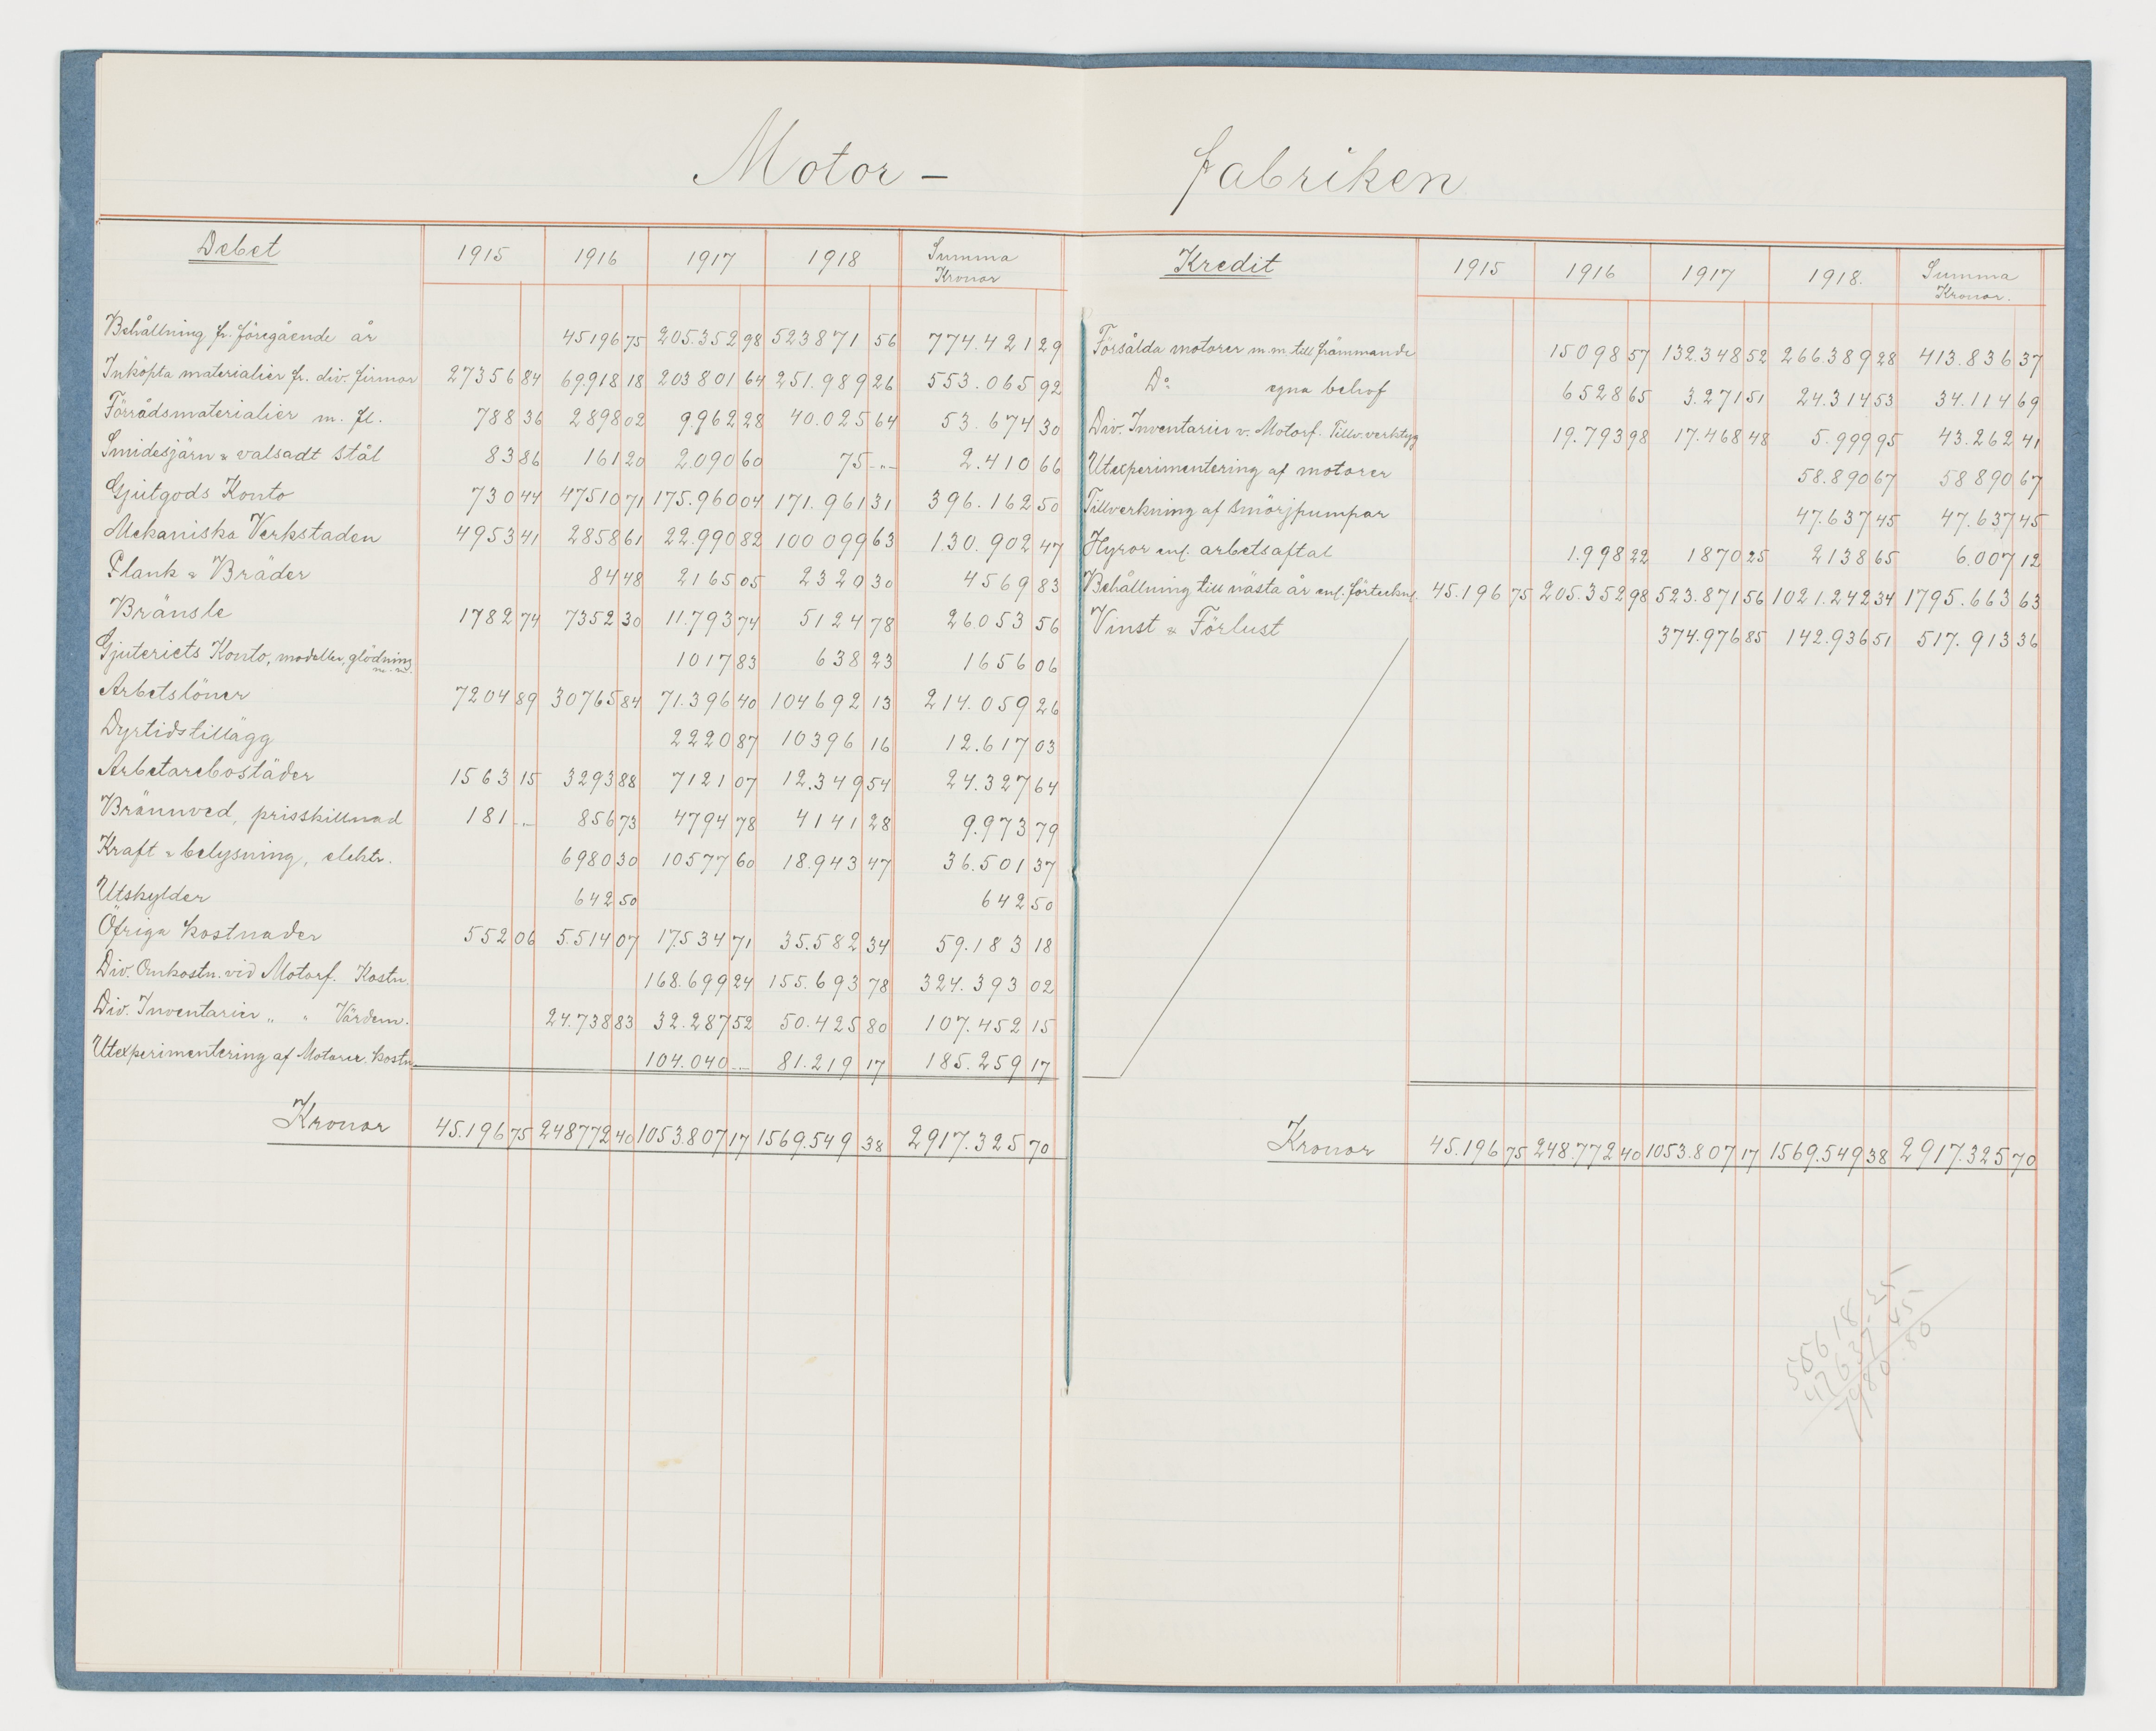 Motor - fabriken
Debet 1915 1916 1917 1918 Summa Kronor
Behållning fr. föregående år 45196 75 205.352 98 523871 56 774.421 29
Inköpta materialier fr. div. firmor 27356 84 69.918 18 203801 64 251.989 26 553.065 92
Förrådsmaterialier m. fl. 788 36 2898 02 9.962 28 40.025 64 53.674 30
Smidesjärn & valsadt stål 83 86 161 20 2.090 60 75 -.- 2.410 66
Gjutgods Konto 730 44 47510 71 175.960 04 171.961 31 396.162 50
Mekaniska Verkstaden 4953 41 2858 61 22.990 82 100099 63 130.902 47
Plank & Bräder 84 48 2165 05 2320 30 4569 83
Bränsle 1782 74 7352 30 11.793 74 5124 78 26053 56
Gjuteriets Konto, modeller, glödning m. m. 1017 83 638 23 1656 06
Arbetslöner 7204 89 30765 84 71.396 40 104692 13 214.059 26
Dyrtidstillägg 2220 87 10396 16 12.617 03
Arbetarebostäder 1563 15 3293 88 7121 07 12.349 54 24.327 64
Brännved, prisskillnad 181 -.- 856 73 4794 78 4141 28 9.973 79
Kraft & belysning, elektr. 6980 30 10577 60 18.943 47 36.501 37
Utskylder 642 50 642 50
Öfriga kostnader 552 06 5.514 07 17.534 71 35.582 34 59.183 18
Div. Omkostn. vid Motorf. Kostn. 168.699 24 155.693 78 324.393 02
Div. Inventarier " " Värdem. 24.738 83 32.287 52 50.425 80 107.452 15
Utexperimentering af Motorer. kostn. 104.040 -.- 81.219 17 185.259 17
Kronor 45.196 75 248772 40 1053.807 17 1569.549 38 2917.325 70
Kredit 1915 1916 1917 1918. Summa Kronor.
Försålda motorer m.m. till främmande 15098 57 132.348 52 266.389 28 413.836 37
Do egna behof 6528 65 3.271 51 24.314 53 34.114 69
Div. Inventarier v. Motorf. Tillv. verktyg 19.793 98 17.468 48 5.999 95 43.262 41
Utexperimentering af motorer 58.890 67 58890 67
Tillverkning af smörjpumpar 47.637 45 47.637 45
Hyror enl. arbetsaftal 1.998 22 1870 25 2138 65 6.007 12
Behållning till nästa år enl. förteckn. 45.196 75 205.352 98 523.871 56 1021.242 34 1795.663 63
Vinst & Förlust 374.976 85 142.936 51 517.913 36
Kronor 45.196 75 248.772 40 1053.807 17 1569.549 38 2917.325 70